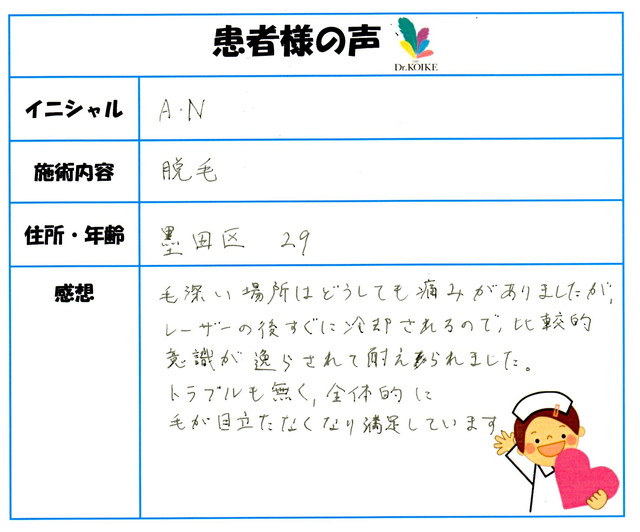 患者様の声
Dr.KOIKE
イニシャル
A・N
施術内容
脱毛
住所・年齢
墨田区 29
感想
毛深い場所はどうしても痛みがありましたが、
レーザーの後すぐに冷却されるので、比較的
意識が逸らされて耐えられました。
トラブルも無く、全体的に
毛が目立たなくなり満足しています